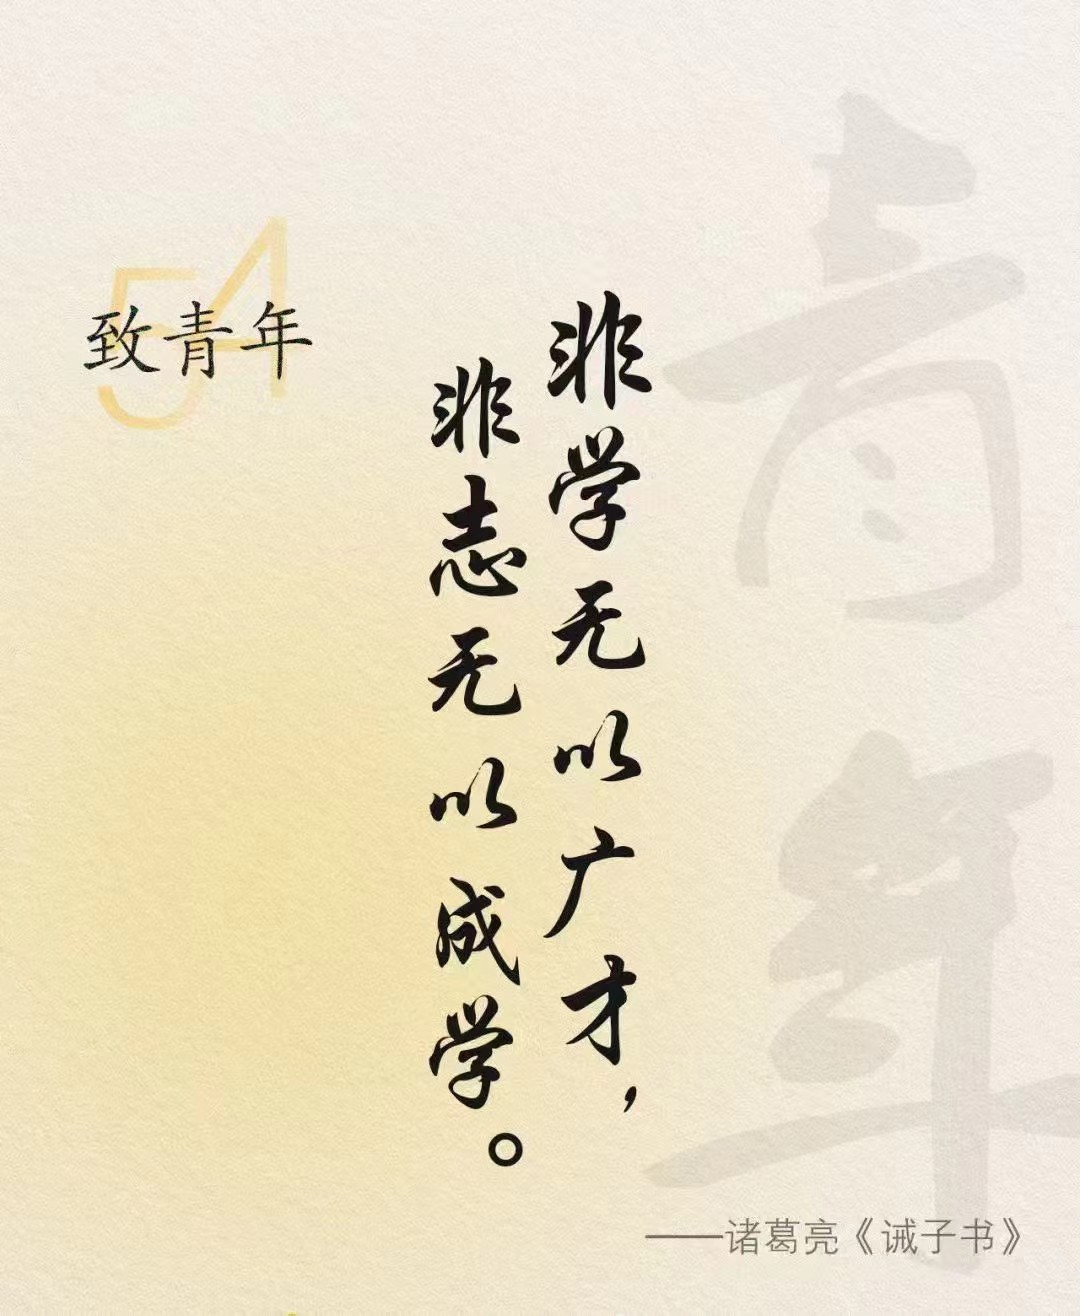 54
致青年
非学无以广才，
非志无以成学。
青年
——诸葛亮《诫子书》